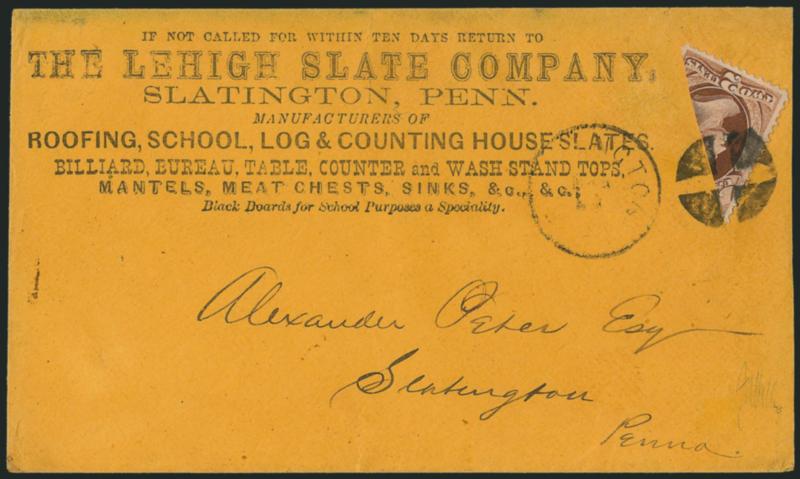 IF NOT CALLED FOR WITHIN TEN DAYS RETURN TO
THE LEHIGH SLATE COMPANY,
SLATINGTON, PENN.
MANUFACTURERS OF
ROOFING, SCHOOL, LOG & COUNTING HOUSE SLATES.
BILLIARD, BUREAU, TABLE, COUNTER and WASH STAND TOPS,
MANTELS, MEAT CHESTS, SINKS, &c., &c.
Black Boards for School Purposes a Speciality.
Alexander Peter Esq
Slatington
Penna.